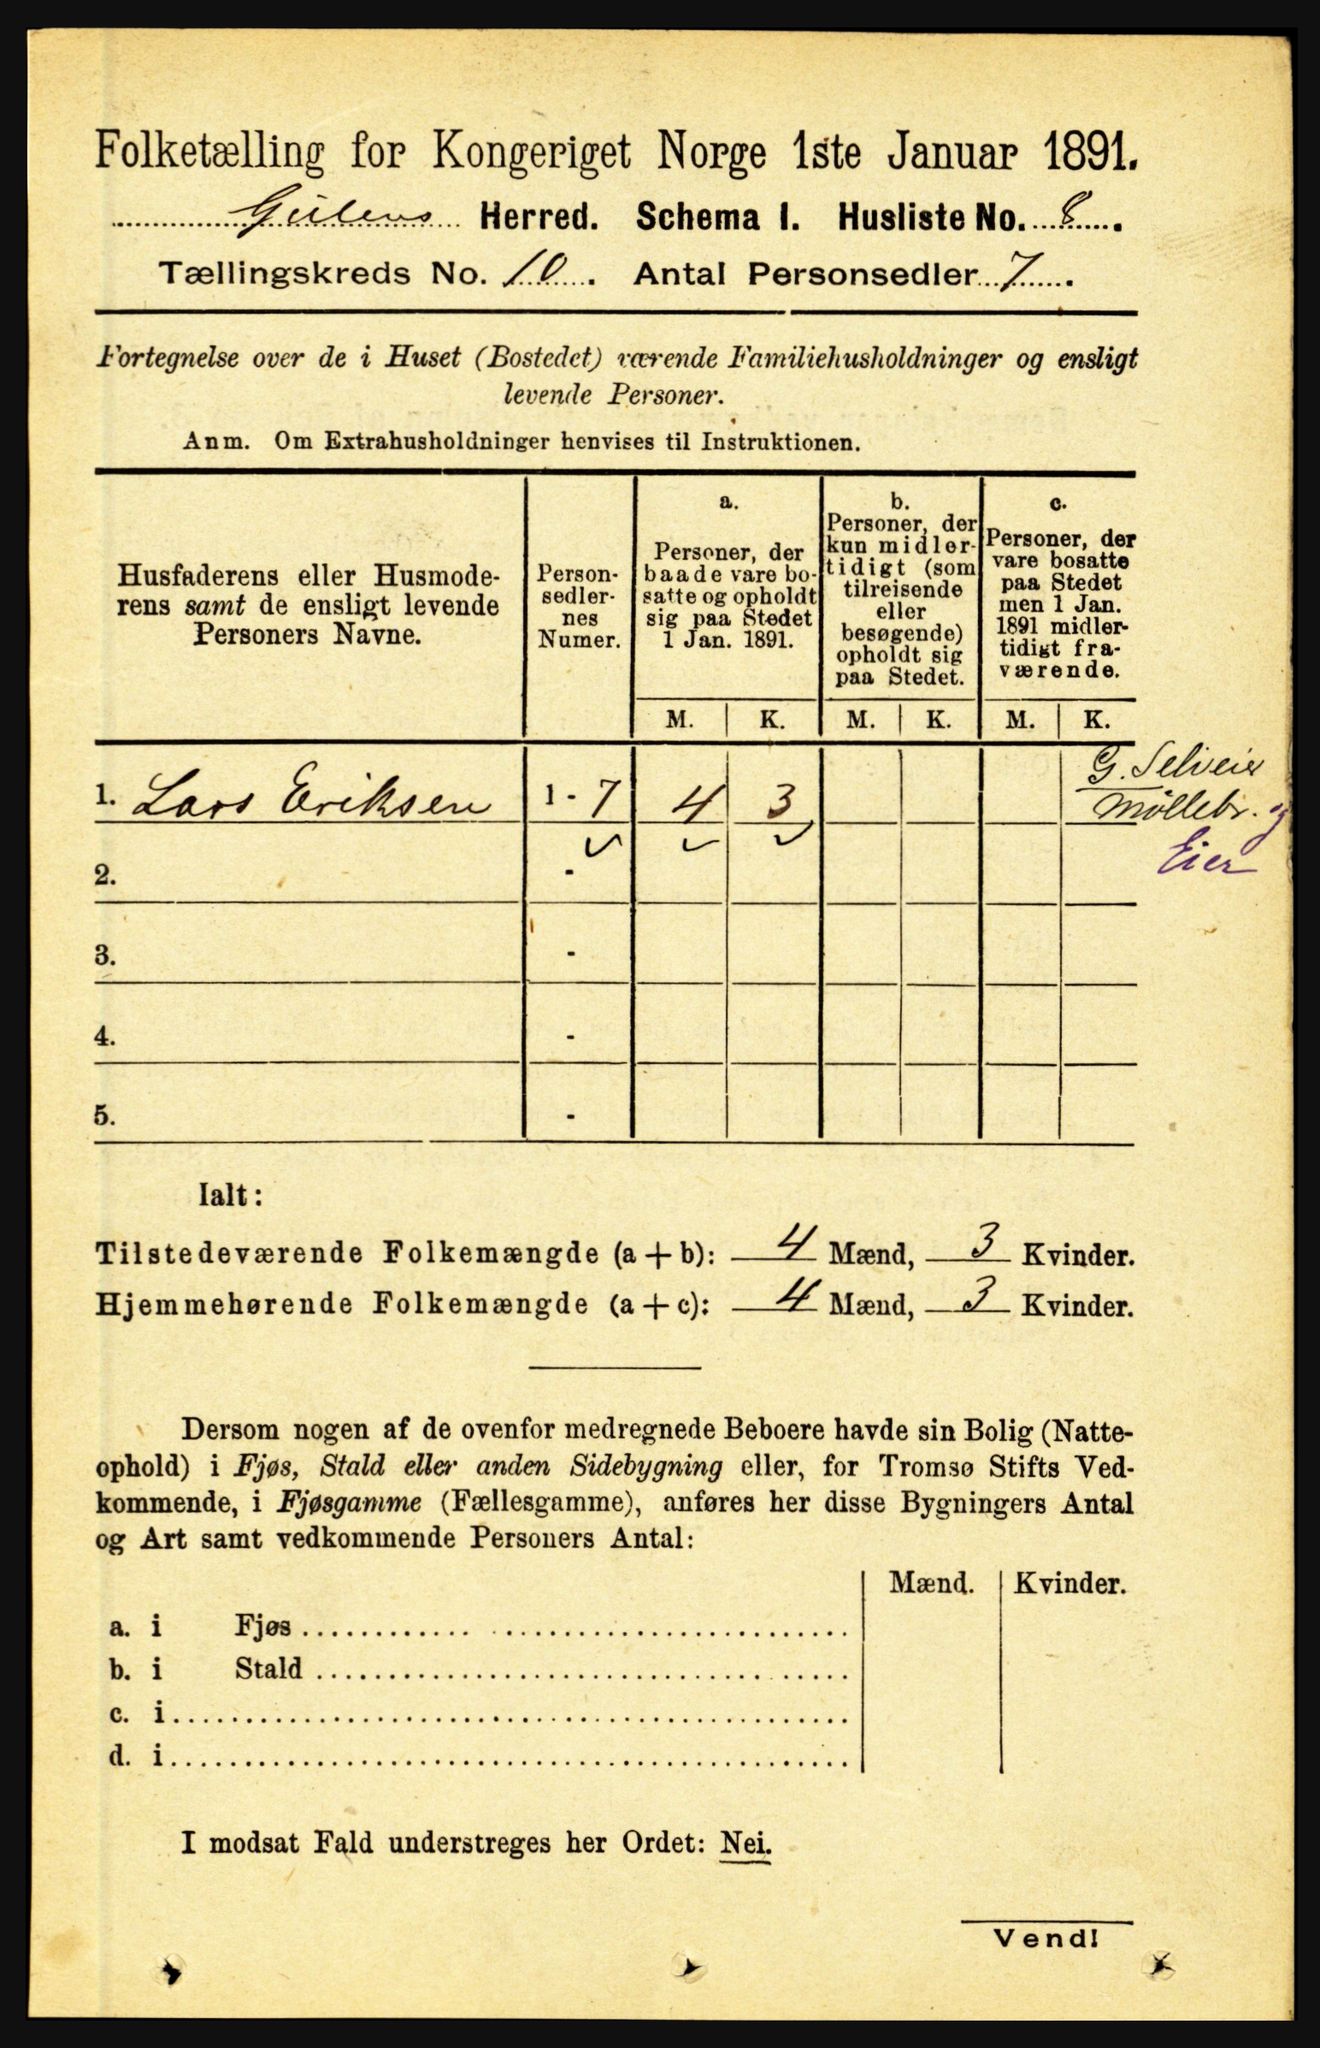 Folketælling for Kongeriget Norge 1ste Januar 1891.
Gulens Herred. Schema I. Husliste No. 8.
Tællingskreds No. 10. Antal Personsedler 7.
Fortegnelse over de i Huset (Bostedet) værende Familiehusholdninger og ensligt
levende Personer.
Anm. Om Extrahusholdninger henvises til Instruktionen.
Husfaderens eller Husmode-
rens samt de ensligt levende
Personers Navne.
Person-
sedler-
nes
Numer.
a.
Personer, der
baade vare bo-
satte og opholdt
sig paa Stedet
1 Jan. 1891.
b.
Personer, der
kun midler-
tidigt (som
tilreisende
eller
besøgende)
opholdt sig
paa Stedet.
c.
Personer, der
vare bosatte
paa Stedet
men 1 Jan.
1891 midler-
tidigt fra-
værende.
M. K. M. K. M. K.
1. Lars Eriksen 1 - 7 4 3
G. Selveier
Møllebr. og
Eier
2. -
3. -
4. -
5. -
Ialt:
Tilstedeværende Folkemængde (a + b): 4 Mænd, 3 Kvinder.
Hjemmehørende Folkemængde (a + c): 4 Mænd, 3 Kvinder.
Dersom nogen af de ovenfor medregnede Beboere havde sin Bolig (Natte-
ophold) i Fjøs, Stald eller anden Sidebygning eller, for Tromsø Stifts Ved-
kommende, i Fjøsgamme (Fællesgamme), anføres her disse Bygningers Antal
og Art samt vedkommende Personers Antal:
Mænd. Kvinder.
a. i Fjøs
b. i Stald
c. i
d. i
I modsat Fald understreges her Ordet: Nei.
Vend!